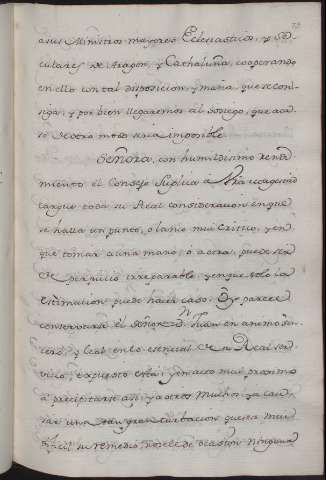 asus Ministros mayores Eclesiasticos, y Se-
culares de Aragon, y Cathaluña, cooperando
en ello con tal disposicion, y maña que se consi-
siga, y por bien llegaremos al sosiego, que aca-
so de otro modo seria imposible.
Señora, con humildisimo rendi-
miento el Consejo suplica a V. Magestad
cargue toda su Real consideracion en que
se halla un punto, o lance mui critico, y en
que tomar a una mano, ó a otra, puede ser
de perjuicio irreparable y en que solo la
estimacion puede hacer caso. Oy parece
conservarse el Señor Dn Juan en animo sin-
cero, y leal en lo esencial de su Real ser-
vicio; expuesto está, y en acto mui proximo
a precipitarse asi, y a otros muchos, y a cau-
sar una tan gran turbacion que sea mui
dificil su remedio, no se le de ocasion ninguna